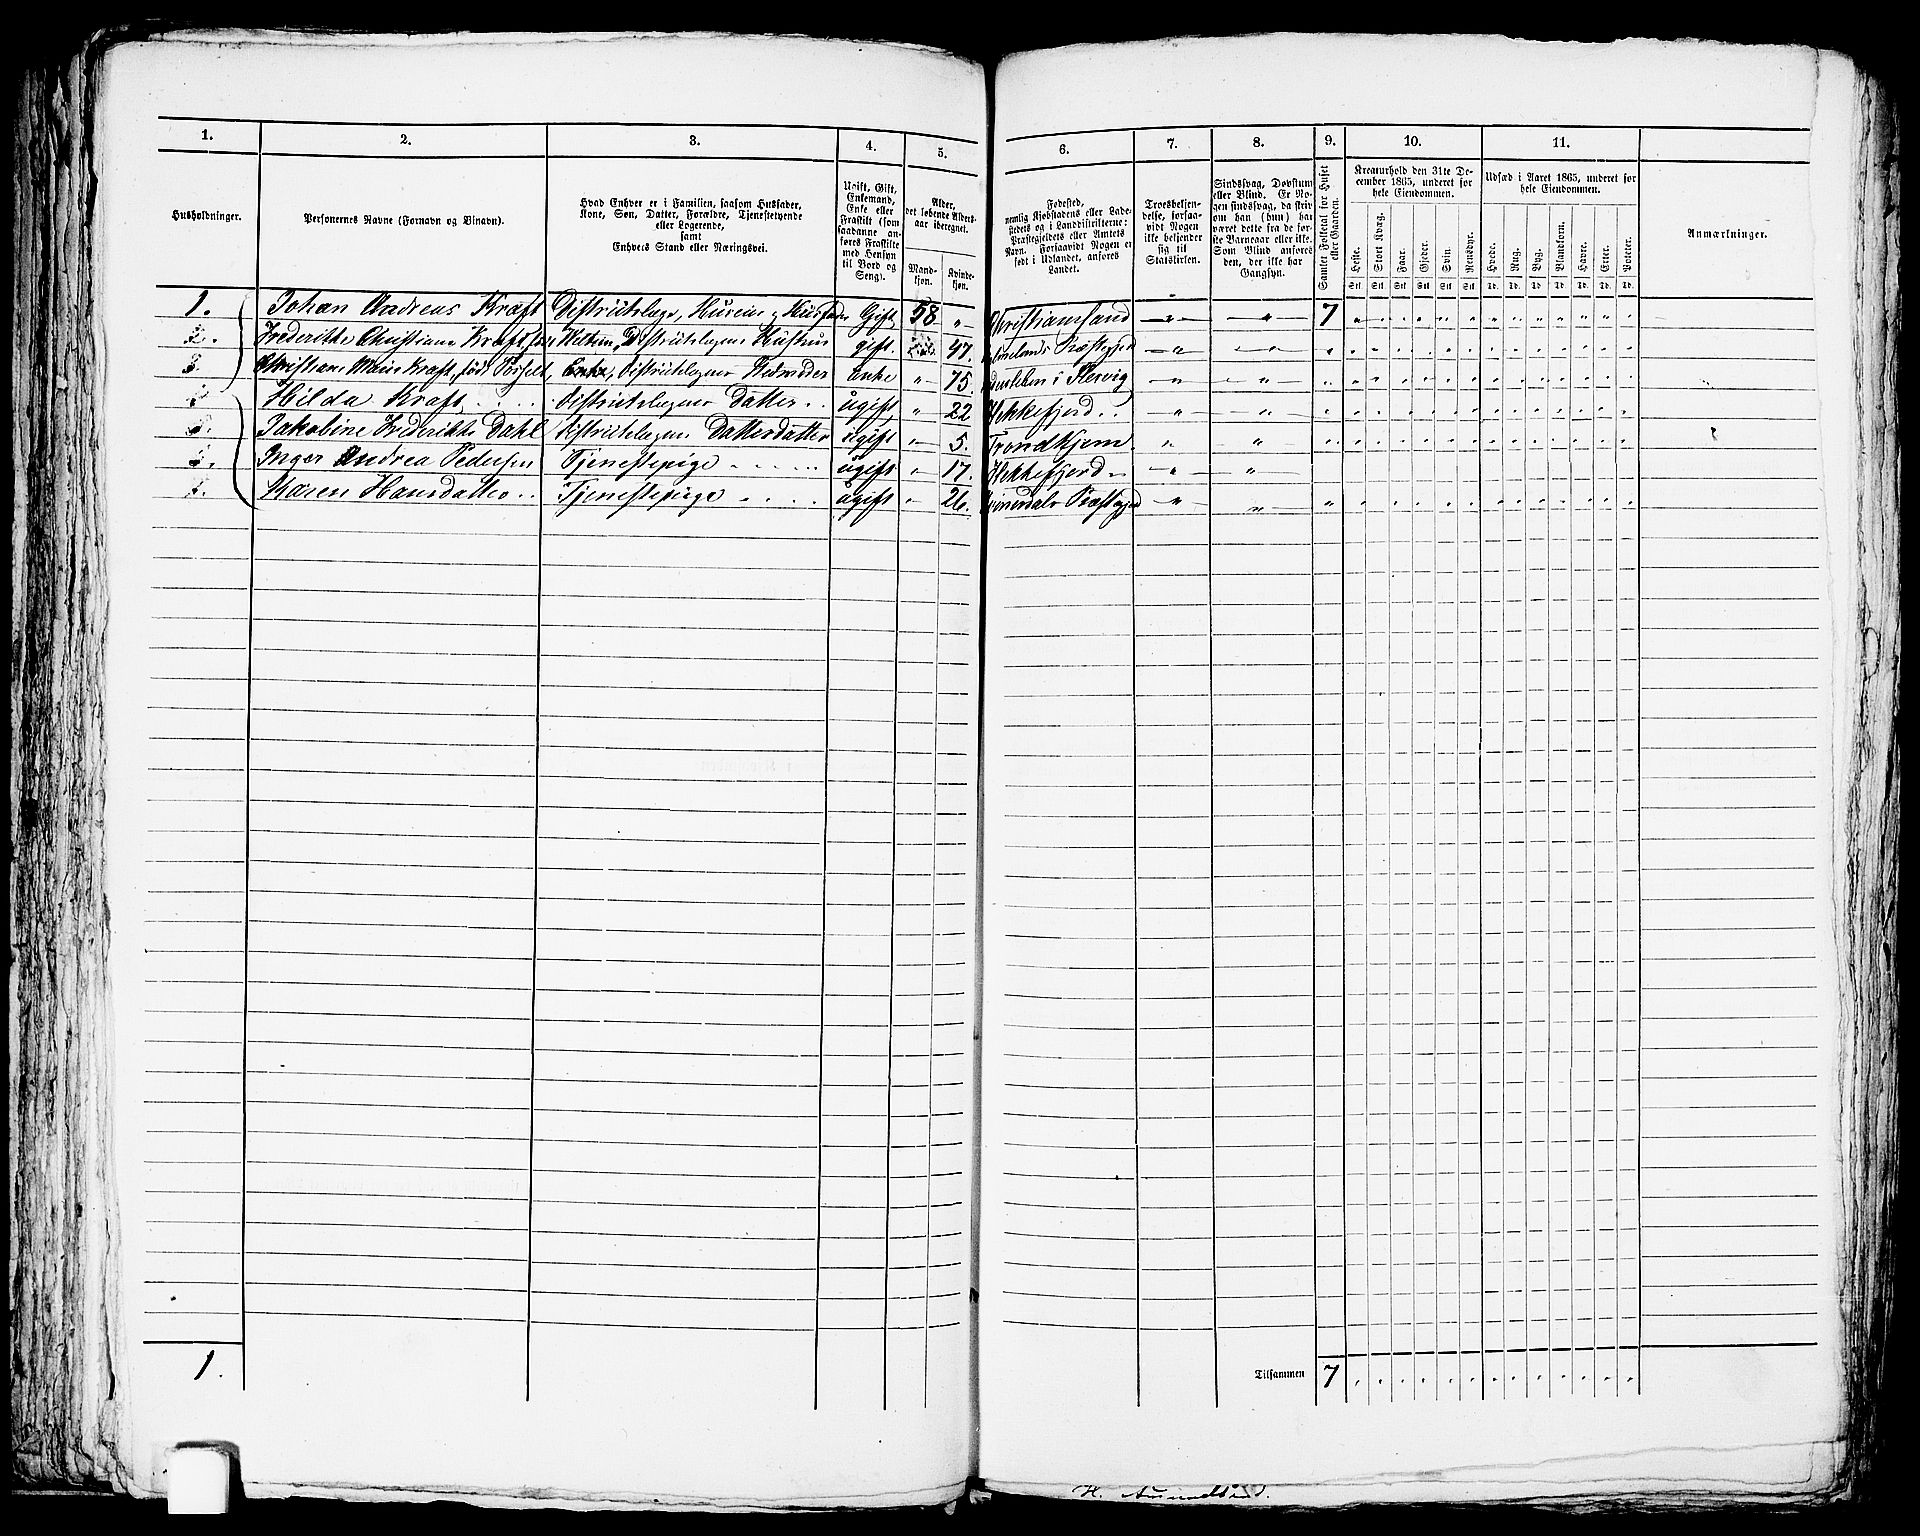 1. 2. 3. 4. 5. 6. 7. 8. 9. 10. 11.
Husholdninger.
Personernes Navne (Fornavn og Binavn).
Hvad Enhver er i Familien, saasom Husfader,
Kone, Søn, Datter, Forældre, Tjenestetyende
eller Logerende,
samt
Enhvers Stand eller Næringsvei.
Ugift, Gift,
Enkemand,
Enke eller
Fraskilt (som
saadanne an-
føres Fraskilte
med Hensyn
til Bord og
Seng).
Alder,
det løbende Alders-
aar iberegnet.
Mand-
kjøn.
Kvinde-
kjøn.
Fødested,
nemlig Kjøbstadens eller Lade-
stedets og i Landdistrikterne:
Præstegjeldets eller Amtets
Navn. Forsaavidt Nogen er
født i Udlandet, anføres
Landet.
Troesbekjen-
delse, forsaa-
vidt Nogen
ikke bekjender
sig til
Statskirken.
Sindssvag, Døvstum
eller Blind. Er No-
gen sindssvag, da skriv
om han (hun) har
været dette fra de før-
ste Barneaar eller ikke.
Som Blind anføres
den, der ikke har
Gangsyn.
Samlet Folketal for Huset
eller Gaarden.
Kreaturhold den 31te De-
cember 1865, underet for
hele Eiendommen.
Heste. Stort Kvæg. Faar. Gjeder. Svin. Rensdyr.
Udsæd i Aaret 1865, underet for
hele Eiendommen.
Hvede. Rug. Byg. Blandkorn. Havre. Erter. Poteter.
Anmærkninger.
Stk Stk Stk Stk Stk Stk Td. Td. Td. Td. Td. Td. Td.
1. Johan Andreas Kraft Districtslæge, Huseier, Husfader Gift 58 „ Christianssand „ „ 7
Frederikke Christiane Kraft Districtslægens Hustru gift. 47. Præstegjeld „ „
Christiane Marie Kraft, født Enke, Districtslægens enke „ 75. i Slesvig „ „
Hilda Kraft Districtslægens Datter ugift „ 22 Flekkefjord „ „
Jakobine Frederikke Dahl Districtslægens Datterdatter ugift „ 5. Trondhjem „ „
Inger Andrea Pedersen Tjenestepige ugift „ 17. Flekkefjord „ „
Karen Hansdatter Tjenestepige ugift „ 26. Præstegjeld „ „
1.
Tilsammen 7
H.